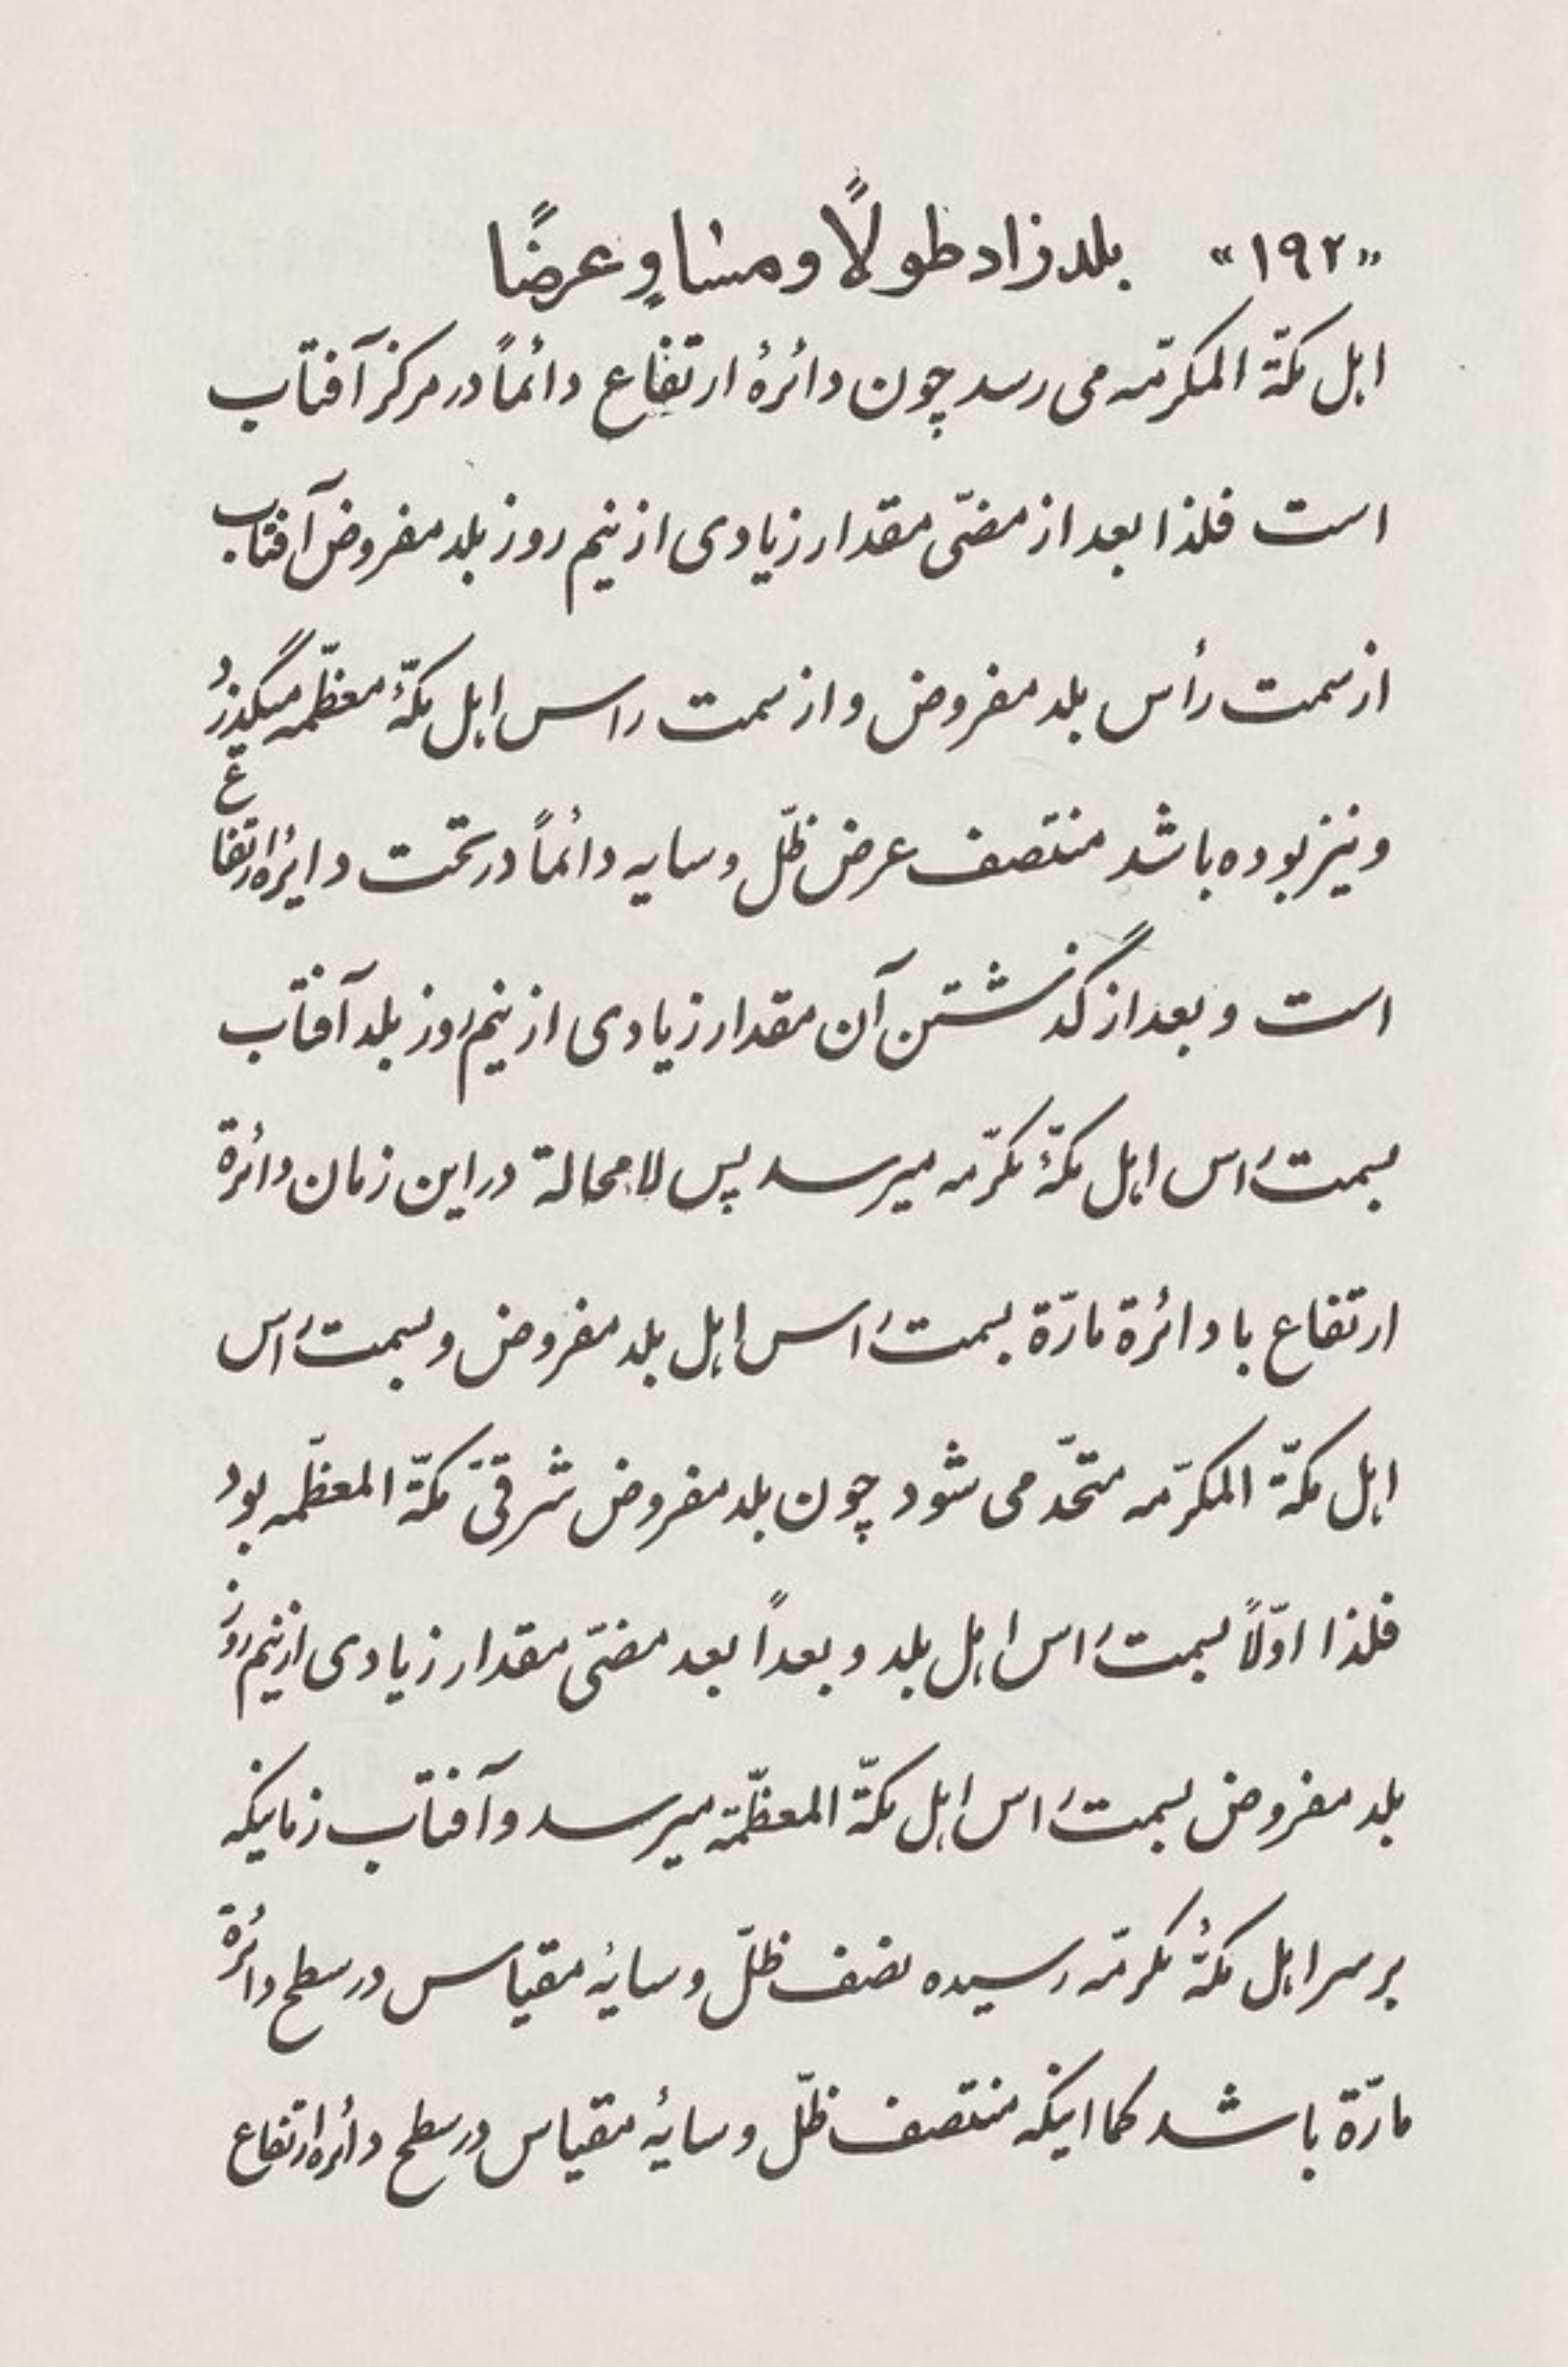 «۱۹۲» بلد زاد طولًا و مساوٍ عرضًا
اهل مکّة المکرّمه می رسد چون دائرهٔ ارتفاع دائماً در مرکز آفتاب
است فلذا بعد از مضّی مقدار زیادی از نیم روز بلد مفروض آفتاب
از سمت رأس بلد مفروض و از سمت راس اهل مکّهٔ معظّمه میگذرد
و نیز بوده باشد منتصف عرض ظلّ و سایه دائماً در تحت دایرٔه ارتفاع
است و بعد از گذشتن آن مقدار زیادی از نیم روز بلد آفتاب
بسمت راس اهل مکّهٔ مکرّمه میرسد پس لامحالة در این زمان دائرة
ارتفاع با دائرة مارّة بسمت راس اهل بلد مفروض و بسمت راس
اهل مکّة المکرّمه متحّد می شود چون بلد مفروض شرقّی مکّة المعظّمه بود
فلذا اوّلاً بسمت راس اهل بلد و بعداً بعد مضّی مقدار زیادی از نیم روز
بلد مفروض بسمت راس اهل مکّة المعظّمة میرسد و آفتاب زمانیکه
بر سر اهل مکّهٔ مکرمّه رسیده نصف ظلّ و سایهٔ مقیاس در سطح دائرة
مارّة باشد کما اینکه منتصف ظلّ و سایهٔ مقیاس در سطح دائره ارتفاع